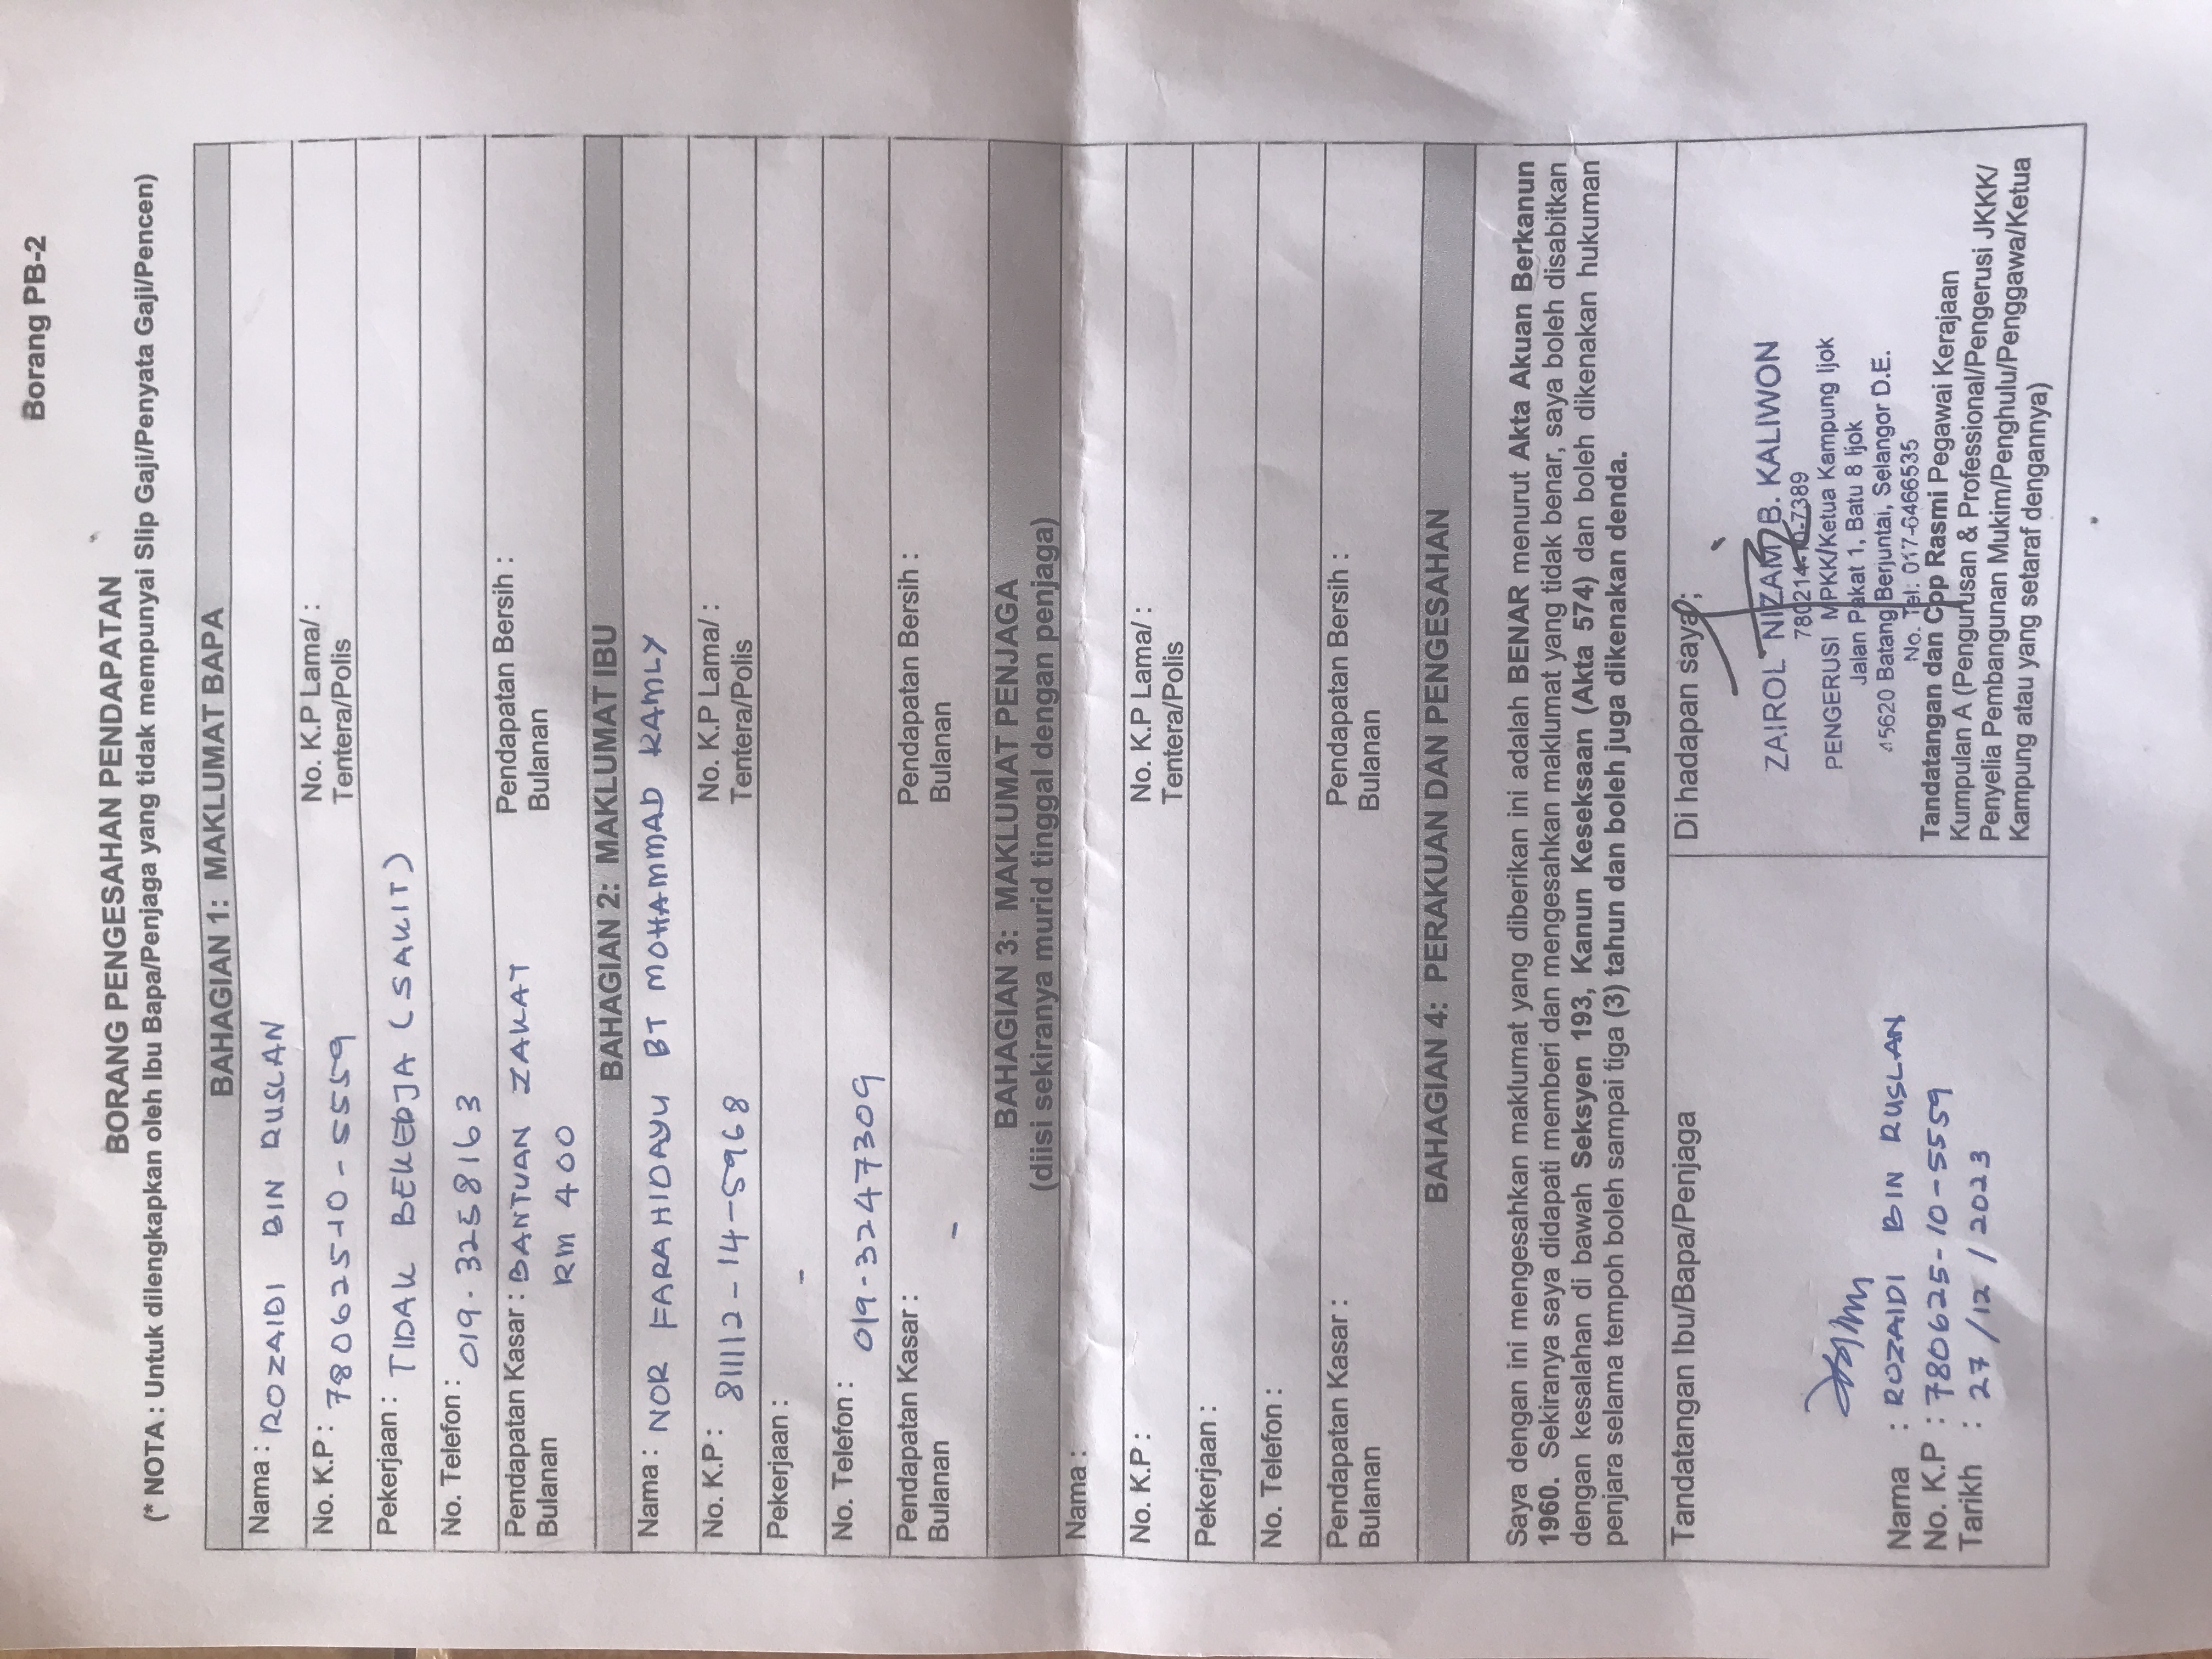 Borang PB-2
BORANG PENGESAHAN PENDAPATAN
(* NOTA : Untuk dilengkapkan oleh Ibu Bapa/Penjaga yang tidak mempunyai Slip Gaji/Penyata Gaji/Pencen)
BAHAGIAN 1: MAKLUMAT BAPA
Nama : ROZAIDI BIN RUSLAN
No. K.P : 780625-10-5559 No. K.P Lama/ :
Tentera/Polis
Pekerjaan : TIDAK BEKERJA (SAKIT)
No. Telefon : 019-3258163
Pendapatan Kasar : BANTUAN ZAKAT Pendapatan Bersih :
Bulanan RM 400 Bulanan
BAHAGIAN 2: MAKLUMAT IBU
Nama : NOR FARAHIDAYU BT MOHAMMAD RAMLY
No. K.P : 811112-14-5968 No. K.P Lama/ :
Tentera/Polis
Pekerjaan : -
No. Telefon : 019-3247309
Pendapatan Kasar : Pendapatan Bersih :
Bulanan - Bulanan
BAHAGIAN 3: MAKLUMAT PENJAGA
(diisi sekiranya murid tinggal dengan penjaga)
Nama :
No. K.P : No. K.P Lama/ :
Tentera/Polis
Pekerjaan :
No. Telefon :
Pendapatan Kasar : Pendapatan Bersih :
Bulanan Bulanan
BAHAGIAN 4: PERAKUAN DAN PENGESAHAN
Saya dengan ini mengesahkan maklumat yang diberikan ini adalah BENAR menurut Akta Akuan Berkanun
1960. Sekiranya saya didapati memberi dan mengesahkan maklumat yang tidak benar, saya boleh disabitkan
dengan kesalahan di bawah Seksyen 193, Kanun Keseksaan (Akta 574) dan boleh dikenakan hukuman
penjara selama tempoh boleh sampai tiga (3) tahun dan boleh juga dikenakan denda.
Tandatangan Ibu/Bapa/Penjaga
Nama : ROZAIDI BIN RUSLAN
No. K.P : 780625-10-5559
Tarikh : 27/12/2023
Di hadapan saya;
ZAIROL NIZAM B. KALIWON
780214-10-7389
PENGERUSI MPKK/Ketua Kampung Ijok
Jalan Pakat 1, Batu 8 Ijok
45620 Batang Berjuntai, Selangor D.E.
No. Tel: 017-6466535
Tandatangan dan Cop Rasmi Pegawai Kerajaan
Kumpulan A (Pengurusan & Professional/Pengerusi JKKK/
Penyelia Pembangunan Mukim/Penghulu/Penggawa/Ketua
Kampung atau yang setaraf dengannya)